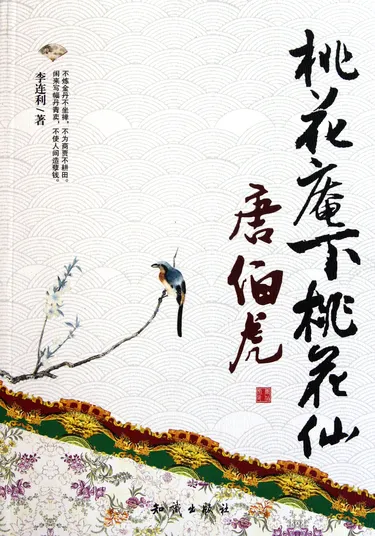 桃花庵下桃花仙
唐伯虎
李连利/著
不炼金丹不坐禅，不为商贾不耕田。
闲来写幅丹青卖，不使人间造孽钱。
知识出版社